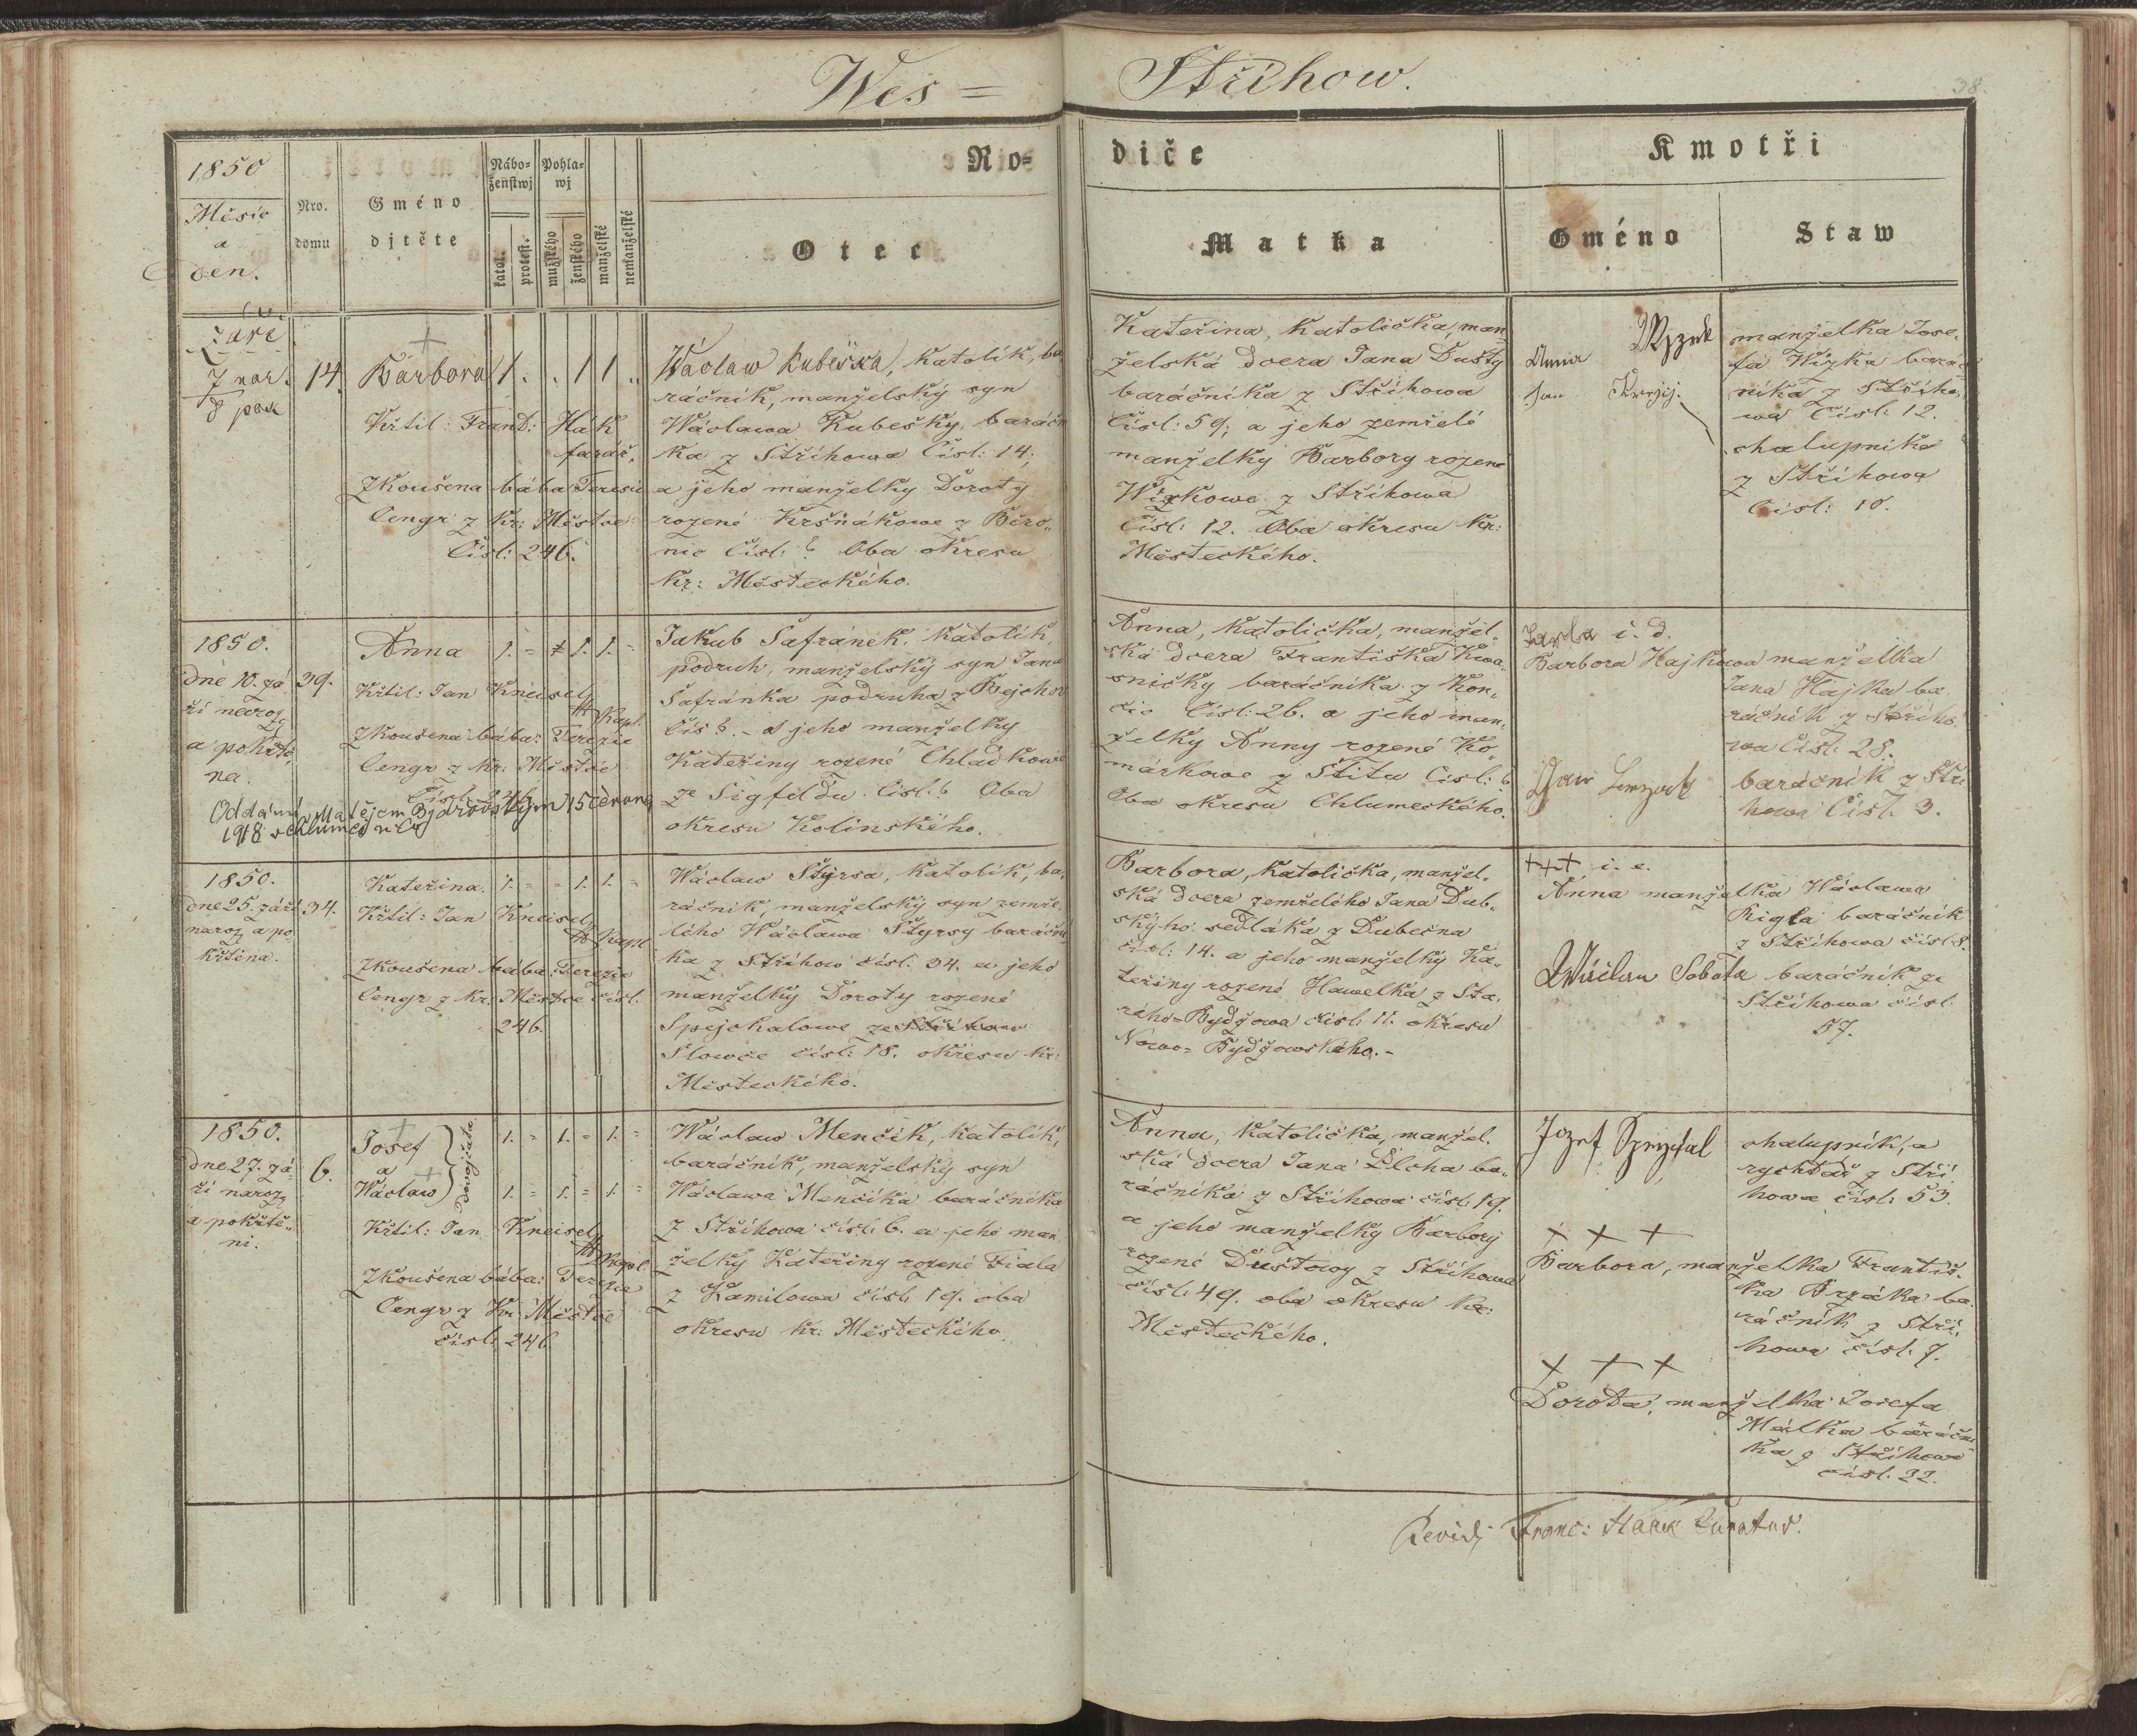 Wes = Střihow.
38
1850
Měsíc
a
den.
Nro.
domu
Gméno
djtěte
Nábo=
ženstwj
katol.
protest.
Pohla=
wj
mužského
ženského
manželské
nemanželské
Ro=
diče
Otec
Matka
Kmotři
Gméno
Staw
Září
7 nar.
8 pok
14.
Barbora 1. . . 1 1 ..
Křtil: Frant: Hák
farář.
Zkoušena bába Teresie
Cengr z Kr: Městce
Čisl: 246.
Wáclaw Kubeška, Katolík, ba
ráčník, manželský syn
Wáclawa Kubešky, baráčn
ka z Střihowa Čisl: 14;
a jeho manželky Doroty
rozené Kršňákowe z Běro„
nic Čisl: ? Oba okresu
Kr: Městeckého.
Kateřina, Katolička, man
želská dcera Jana Dusty
baráčníka z Střihowa
Čisl: 59; a jeho zemřelé
manželky Barbory rozene
Wizkowe z Střihowa
Čisl: 12. Oba okresu Kr:
Městeckého.
Anna Wyzek
Jan Krejcj.
manželka Jose„
fa Wizka barač
níka z Střiho„
wa Čisl: 12.
chalupnika
z Střihowa
Čisl: 10.
1850.
dne 10. zá
ří naroz
a pokřtě„
na.
39.
Anna 1. = ≠ 1. 1. =
Křtil: Jan Kneisely
Kapl.
Zkoušena bába: Terezie
Cengr z Kr: Městce
Čisl: 246
Oddána s Matějem Bjdřowským 15 června
1918 w Chlumci n/C
Jakub Šafránek, Katolík,
podruh, manželský syn Jana
Šafránka podruha z Bejchor
Čis ?. - a jeho manželky
Kateřiny rozené Chladkowé
ze Sigfeldu Čisl: 6 Oba
okresu Kolinského.
Anna, Katolička, manžel„
ská dcera Františka Kwa„
sničky baráčníka z Kon„
čic Čisl: 26. a jeho man„
želky Anny rozené Ko„
márkowe z Štitu Čisl: 6
Oba okresu Chlumeckého.
i. d.
Barbora Hajkowa manželka
Jana Hajka ba
ráčník z Střiho„
wa Čisl: 28.
Jan
baráčník z Stři
howa Čisl. 3.
1850.
dne 25. září
naroz a po„
křtěna.
34.
Kateřina. 1. = = 1. 1. =
Křtil: Jan Kneisely
Kapl
Zkoušena bába: Terezie
Cengr z Kr: Městce čisl.
246.
Wáclaw Štyrsa, Katolík, ba„
ráčník, manželský syn zemře„
lého Wáclawa Štyrsy baráční
ka z Střihow čisl: 34. a jeho
manželky Doroty rozené
Spejchalowe ze Střihow
Slowče čisl: 18. okresu Kr:
Městeckého.
Barbora, Katolička, manžel„
ská dcera zemřelého Jana Dub„
ského sedláka z Dubečna
čisl: 14. a jeho manželky Ka„
teřiny rozené Hawelka z Sta„
rého=Bydžowa čisl: 11. okresu
Nowo=Bydžowského.-
+++ i. e.
Anna manželka Wáclawa
Rigla baráčník
z Střihowa čisl 8.
Wáclaw Sobota baráčník ze
Střihowa čisl:
57.
1850.
dne 27. zá
ří naroze
a pokřtě„
ni.
6.
Josef
a
Wáclaw
dwojčata.
1. = 1. = 1. =
1. = 1. = 1. =
Křtil: Jan Kneisely
Kapl.
Zkoušena bába: Terezie
Cengr z Kr: Městce
čisl: 246
Wáclaw Menčík, Katolík,
baráčník, manželský syn
Wáclawa Menčíka baráčníka
z Střihowa čisl: 6. a jeho man
želky Kateřiny rozené Fiala
z Kamilowa čisl: 19. oba
okresu Kr: Městeckého.
Anna, Katolička, manžel.
ská dcera Jana Plcha ba„
ráčníka z Střihowa čisl: 19.
a jeho manželky Barbory
rozené Dustowy z Střihowa
čisl: 49. oba okresu Kr:
Městeckého.
Jozef Spejchal
chalupník, a
rychtář z Stři
howa čisl: 53.
+ + +
Barbora, manželka Františ„
ka Brzáka ba„
ráčník z Stři„
howa čisl: 7.
+ + +
Dorota, manželka Josefa
Málka baráčni
ka z Střihowa
čisl: 22.
Revidi Franc: Haak Curatus.